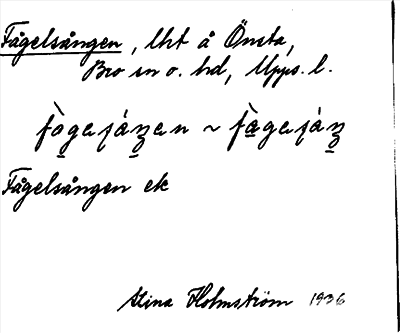 Fågelsången, lht å Önsta,
Bro sn o. hd, Upps. l.
Fågelsången ek
Stina Holmström 1936